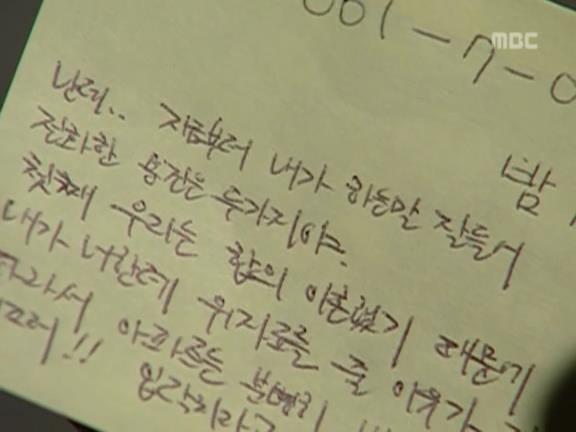 001-7-0
MBC
밤
난데.. 지금부터 내가 하는말 잘들어
전화한 용건은 두가지야.
첫째 우리는 합의 이혼했기 때문에
내가 너한테 위자료를 줄 이유가
따라서 아파트는 분명히
!!